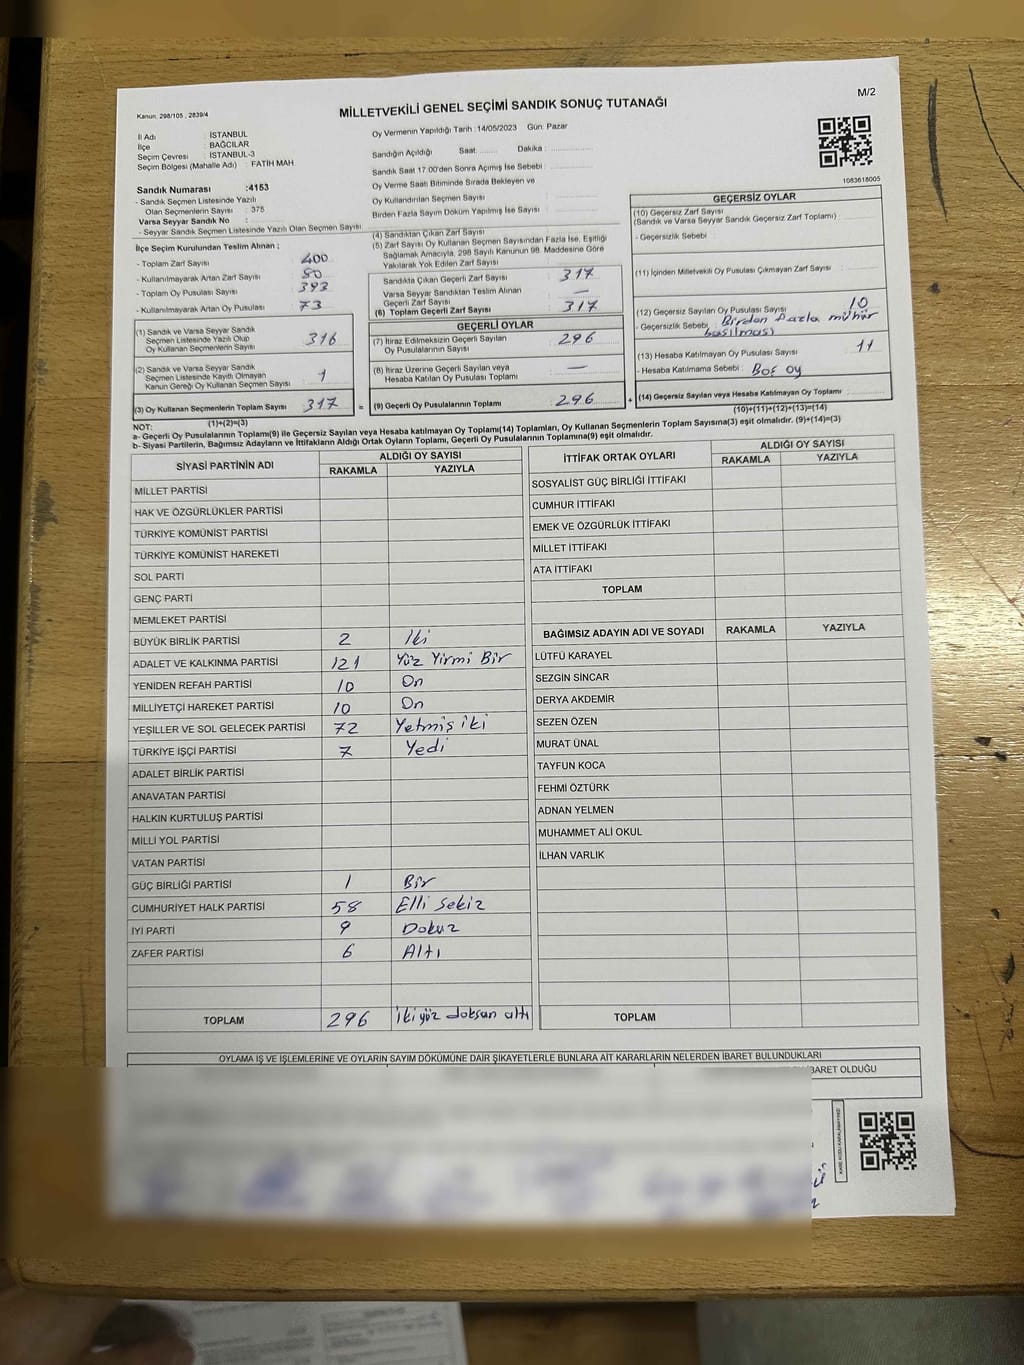 Kanun: 298/105 , 2839/4
MİLLETVEKİLİ GENEL SEÇİMİ SANDIK SONUÇ TUTANAĞI
M/2
İl Adı : İSTANBUL
İlçe : BAĞCILAR
Seçim Çevresi : İSTANBUL-3
Seçim Bölgesi (Mahalle Adı) : FATİH MAH
Sandık Numarası :4153
- Sandık Seçmen Listesinde Yazılı
Olan Seçmenlerin Sayısı : 375
Varsa Seyyar Sandık No :
- Seyyar Sandık Seçmen Listesinde Yazılı Olan Seçmen Sayısı:
İlçe Seçim Kurulundan Teslim Alınan ;
- Toplam Zarf Sayısı 400
- Kullanılmayarak Artan Zarf Sayısı 80
- Toplam Oy Pusulası Sayısı 393
- Kullanılmayarak Artan Oy Pusulası 73
(1) Sandık ve Varsa Seyyar Sandık
Seçmen Listesinde Yazılı Olup
Oy Kullanan Seçmenlerin Sayısı 316
(2) Sandık ve Varsa Seyyar Sandık
Seçmen Listesinde Kayıtlı Olmayan
Kanun Gereği Oy Kullanan Seçmen Sayısı 1
(3) Oy Kullanan Seçmenlerin Toplam Sayısı 317
(1)+(2)=(3)
Oy Vermenin Yapıldığı Tarih : 14/05/2023 Gün: Pazar
Sandığın Açıldığı Saat: Dakika :
Sandık Saat 17.00'den Sonra Açılmış İse Sebebi :
Oy Verme Saati Bitiminde Sırada Bekleyen ve
Oy Kullandırılan Seçmen Sayısı
Birden Fazla Sayım Döküm Yapılmış İse Sayısı
(4) Sandıktan Çıkan Zarf Sayısı
(5) Zarf Sayısı Oy Kullanan Seçmen Sayısından Fazla İse, Eşitliği
Sağlamak Amacıyla, 298 Sayılı Kanunun 98. Maddesine Göre
Yakılarak Yok Edilen Zarf Sayısı
Sandıkta Çıkan Geçerli Zarf Sayısı 317
Varsa Seyyar Sandıktan Teslim Alınan
Geçerli Zarf Sayısı —
(6) Toplam Geçerli Zarf Sayısı 317
GEÇERLİ OYLAR
(7) İtiraz Edilmeksizin Geçerli Sayılan
Oy Pusulalarının Sayısı 296
(8) İtiraz Üzerine Geçerli Sayılan veya
Hesaba Katılan Oy Pusulası Toplamı —
= (9) Geçerli Oy Pusulalarının Toplamı 296
1083618005
GEÇERSİZ OYLAR
(10) Geçersiz Zarf Sayısı
(Sandık ve Varsa Seyyar Sandık Geçersiz Zarf Toplamı) :
- Geçersizlik Sebebi :
(11) İçinden Milletvekili Oy Pusulası Çıkmayan Zarf Sayısı :
(12) Geçersiz Sayılan Oy Pusulası Sayısı 10
- Geçersizlik Sebebi : Birden fazla mühür
basılması
(13) Hesaba Katılmayan Oy Pusulası Sayısı 11
- Hesaba Katılmama Sebebi : Boş oy
+ (14) Geçersiz Sayılan veya Hesaba Katılmayan Oy Toplamı :
(10)+(11)+(12)+(13)=(14)
NOT:
a- Geçerli Oy Pusulalarının Toplamı(9) ile Geçersiz Sayılan veya Hesaba katılmayan Oy Toplamı(14) Toplamları, Oy Kullanan Seçmenlerin Toplam Sayısına(3) eşit olmalıdır. (9)+(14)=(3)
b- Siyasi Partilerin, Bağımsız Adayların ve İttifakların Aldığı Ortak Oyların Toplamı, Geçerli Oy Pusulalarının Toplamına(9) eşit olmalıdır.
SİYASİ PARTİNİN ADI ALDIĞI OY SAYISI
RAKAMLA YAZIYLA
MİLLET PARTİSİ
HAK VE ÖZGÜRLÜKLER PARTİSİ
TÜRKİYE KOMÜNİST PARTİSİ
TÜRKİYE KOMÜNİST HAREKETİ
SOL PARTİ
GENÇ PARTİ
MEMLEKET PARTİSİ
BÜYÜK BİRLİK PARTİSİ 2 İki
ADALET VE KALKINMA PARTİSİ 121 Yüz Yirmi Bir
YENİDEN REFAH PARTİSİ 10 On
MİLLİYETÇİ HAREKET PARTİSİ 10 On
YEŞİLLER VE SOL GELECEK PARTİSİ 72 Yetmiş iki
TÜRKİYE İŞÇİ PARTİSİ 7 Yedi
ADALET BİRLİK PARTİSİ
ANAVATAN PARTİSİ
HALKIN KURTULUŞ PARTİSİ
MİLLİ YOL PARTİSİ
VATAN PARTİSİ
GÜÇ BİRLİĞİ PARTİSİ 1 Bir
CUMHURİYET HALK PARTİSİ 58 Elli sekiz
İYİ PARTİ 9 Dokuz
ZAFER PARTİSİ 6 Altı
TOPLAM 296 İkiyüz doksan altı
İTTİFAK ORTAK OYLARI ALDIĞI OY SAYISI
RAKAMLA YAZIYLA
SOSYALİST GÜÇ BİRLİĞİ İTTİFAKI
CUMHUR İTTİFAKI
EMEK VE ÖZGÜRLÜK İTTİFAKI
MİLLET İTTİFAKI
ATA İTTİFAKI
TOPLAM
BAĞIMSIZ ADAYIN ADI VE SOYADI RAKAMLA YAZIYLA
LÜTFÜ KARAYEL
SEZGİN SİNCAR
DERYA AKDEMİR
SEZEN ÖZEN
MURAT ÜNAL
TAYFUN KOCA
FEHMİ ÖZTÜRK
ADNAN YELMEN
MUHAMMET ALİ OKUL
İLHAN VARLIK
TOPLAM
OYLAMA İŞ VE İŞLEMLERİNE VE OYLARIN SAYIM DÖKÜMÜNE DAİR ŞİKAYETLERLE BUNLARA AİT KARARLARIN NELERDEN İBARET BULUNDUKLARI
BARET OLDUĞU